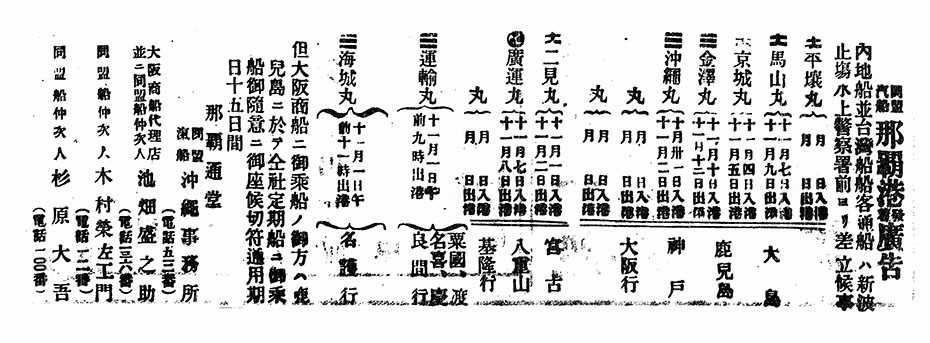 同盟
汽船
那覇港發着廣告
內地船並台灣船船客通船ハ新波
止塲水上警察署前ヨリ差立候事
平壤丸
月 日入港
月 日出港
馬山丸
十一月七日入港
十一月九日出港
大島
京城丸
十一月四日入港
十一月五日出港
金澤丸
十一月十日入港
十一月十二日出港
鹿兒島
沖繩丸
十月卅一日入港
十一月一日出港
神戸
丸
月 日入港
月 日出港
大阪行
丸
月 日入港
月 日出港
二見丸
十一月 日入港
十一月 日出港
宮古
廣運丸
十一月七日入港
十一月八日出港
八重山
丸
月 日入港
月 日出港
基隆行
運輸丸
十一月一日午
前九時出港
粟國、渡
名喜、慶
良間行
海城丸
十一月一日午
前十一時出港
名護行
但大阪商船ニ御乘船ノ御方ハ鹿
兒島ニ於テ仝社定期船ニ御乘
船御隨意ニ御座候切符通用期
日十五日間
那覇通堂
同盟
滊船
沖繩事務所
(電話五三番)
大阪商船代理店
並ニ同盟船仲次人
池畑盛之助
(電話三六番)
同盟船仲次人
木村榮左工門
(電話一二番)
同盟船仲次人
杉原大吾
(電話一〇〇番)